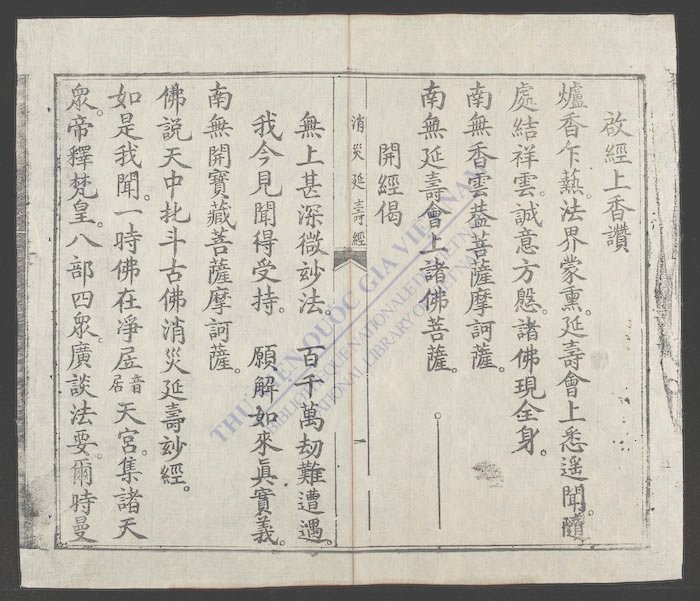 啟經上香讚
爐香乍爇。法界蒙熏。延壽會上悉遥聞。隨
處結祥雲。誠意方慇。諸佛現全身。
南無香雲葢菩薩摩訶薩。
南無延壽會上諸佛菩薩。
開經偈
消災延壽經
一
無上甚深微玅法。 百千萬劫難遭遇。
我今見聞得受持。 願解如來眞實義。
南無開寶藏菩薩摩訶薩。
佛說天中北斗古佛消災延壽玅經。
如是我聞。一時佛在淨㞐音居天宮。集諸天
衆。帝釋梵皇。八部四衆。廣談法要。爾時曼
THƯ VIỆN QUỐC GIA VIỆT NAM
BIBLIOTHÈQUE NATIONALE DU VIETNAM
NATIONAL LIBRARY OF VIETNAM